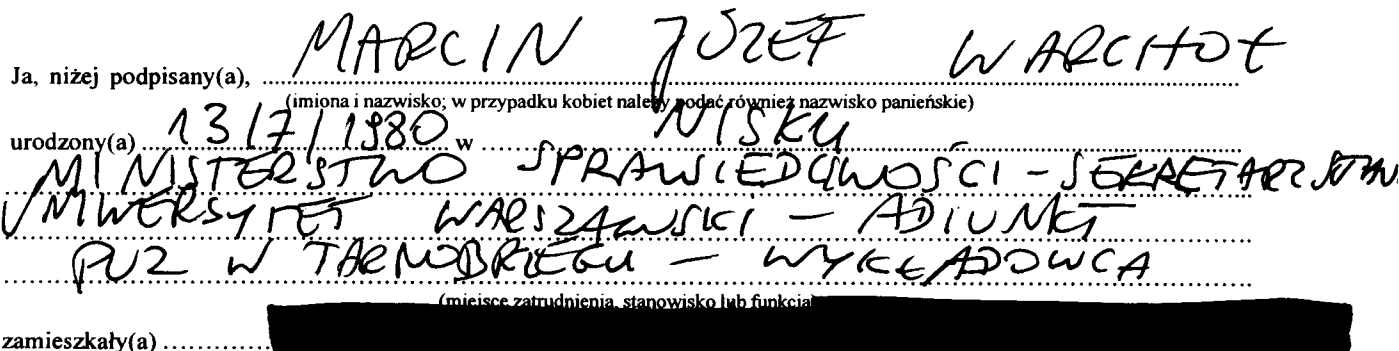 Ja, niżej podpisany(a), MARCIN JÓZEF WARCHOŁ
(imiona i nazwisko; w przypadku kobiet należy podać również nazwisko panieńskie)
urodzony(a) 13/7/1980 w NISKU
MINISTERSTWO SPRAWIEDLIWOŚCI - SEKRETARZ STANU
UNIWERSYTET WARSZAWSKI - ADIUNKT
PUZ W TARNOBRZEGU - WYKŁADOWCA
(miejsce zatrudnienia, stanowisko lub funkcja
zamieszkały(a)